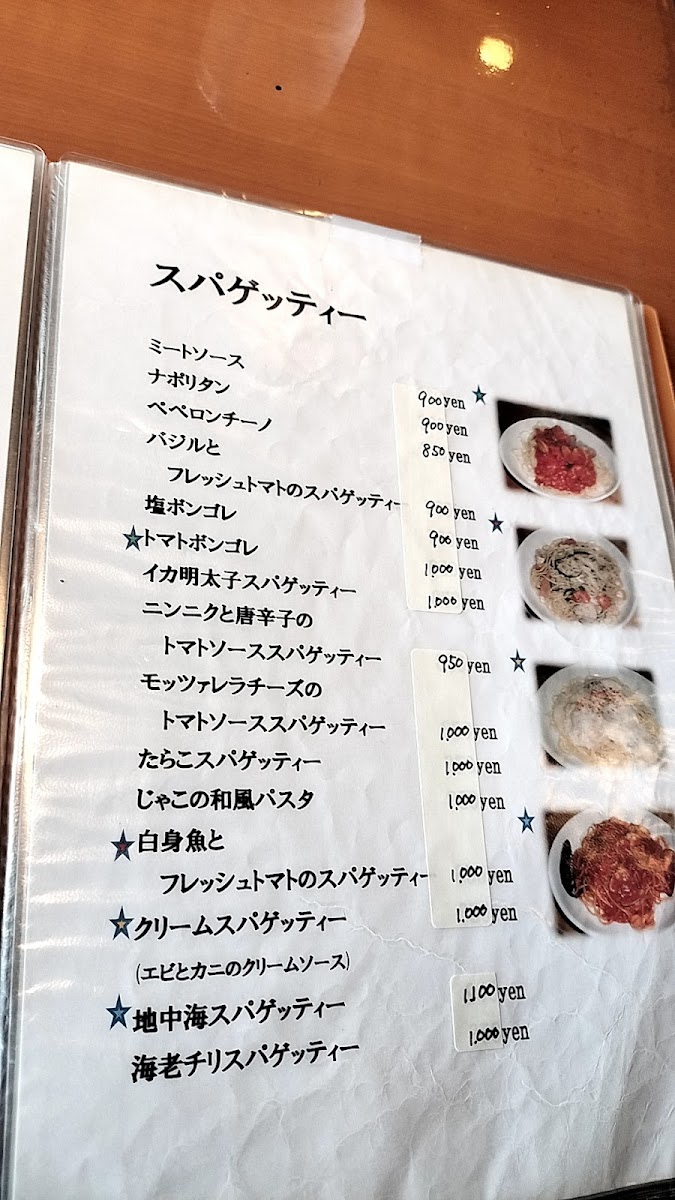 スパゲッティー
ミートソース 900yen
ナポリタン 900yen
ペペロンチーノ 850yen
バジルと
フレッシュトマトのスパゲッティー 900yen
塩ボンゴレ 900yen
トマトボンゴレ 1,000yen
イカ明太子スパゲッティー 1,000yen
ニンニクと唐辛子の
トマトソーススパゲッティー 950yen
モッツァレラチーズの
トマトソーススパゲッティー 1,000yen
たらこスパゲッティー 1,000yen
じゃこの和風パスタ 1,000yen
白身魚と
フレッシュトマトのスパゲッティー 1,000yen
クリームスパゲッティー 1,000yen
(エビとカニのクリームソース)
地中海スパゲッティー 1,100yen
海老チリスパゲッティー 1,000yen